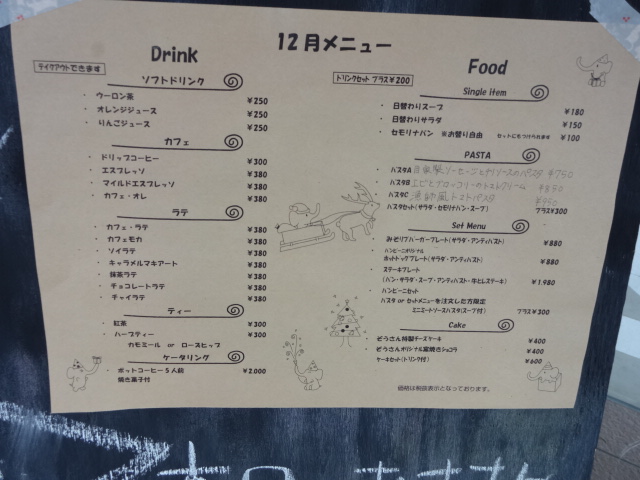 12月メニュー
Drink
テイクアウトできます
ソフトドリンク
・ウーロン茶 ¥250
・オレンジジュース ¥250
・りんごジュース ¥250
カフェ
・ドリップコーヒー ¥300
・エスプレッソ ¥380
・マイルドエスプレッソ ¥380
・カフェ・オレ ¥380
ラテ
・カフェ・ラテ ¥380
・カフェモカ ¥380
・ソイラテ ¥380
・キャラメルマキアート ¥380
・抹茶ラテ ¥380
・チョコレートラテ ¥380
・チャイラテ ¥380
ティー
・紅茶 ¥300
・ハーブティー ¥300
カモミール or ローズヒップ
ケータリング
・ポットコーヒー5人前 ¥2,000
焼き菓子付
Food
ドリンクセット プラス¥200
Single item
・日替わりスープ ¥180
・日替わりサラダ ¥150
・セモリナパン ※お替り自由 セットにもつけられます ¥100
PASTA
・パスタA 自家製ソーセージとチリソースのパスタ ¥750
・パスタB エビとブロッコリーのトマトクリーム ¥850
・パスタC 漁師風トマトパスタ ¥950
パスタセット(サラダ・セモリナパン・スープ) プラス¥300
Set Menu
・みそリブバーガープレート(サラダ・アンティパスト) ¥880
・ハンビーニオリジナル
ホットドッグプレート(サラダ・アンティパスト) ¥880
・ステーキプレート
(パン・サラダ・スープ・アンティパスト・牛ヒレステーキ) ¥1,980
・ハンビーニセット
パスタ or セットメニューを注文した方限定
ミニミートソースパスタ(スープ付) プラス¥300
Cake
・ぞうさん特製チーズケーキ ¥400
・ぞうさんオリジナル窯焼きショコラ ¥400
・ケーキセット(ドリンク付) ¥600
価格は税抜表示となっております。